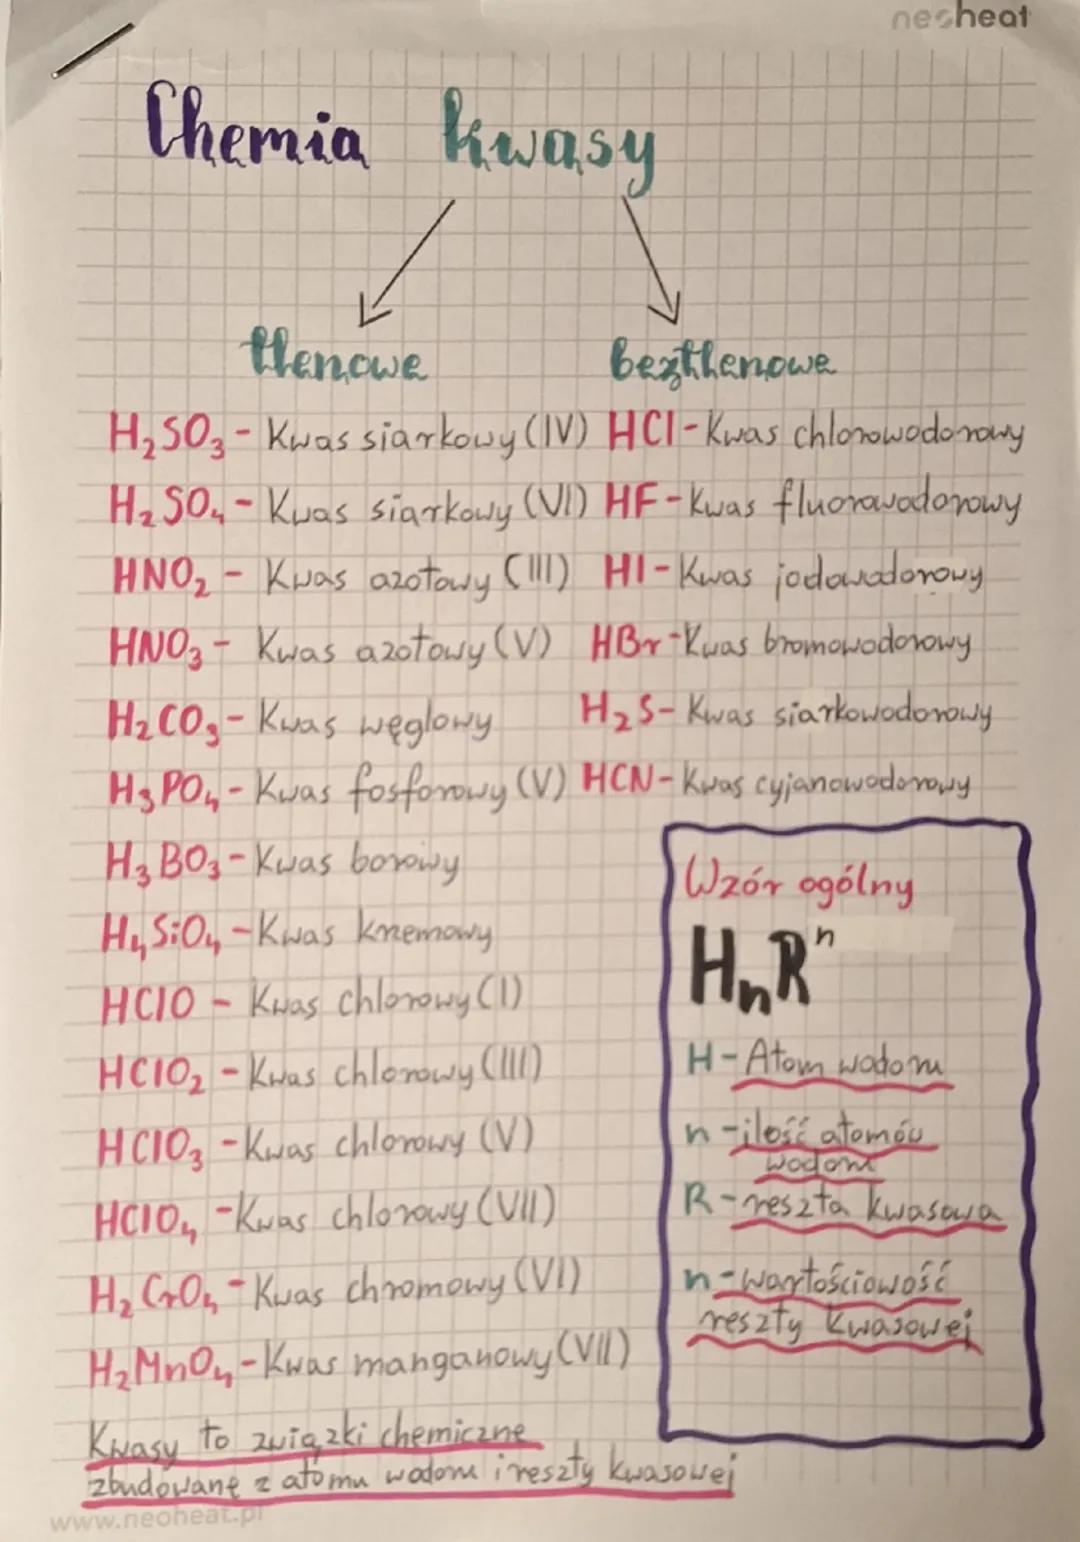 neoheat
Chemia kwasy
tlenowe
beztlenowe
H₂SO₃ - Kwas siarkowy (IV)
H₂SO₄ - Kwas siarkowy (VI)
HNO₂ - Kwas azotowy (III)
HNO₃ - Kwas azotowy (V)
H₂CO₃ - Kwas węglowy
H₃PO₄ - Kwas fosforowy (V)
H₃BO₃ - Kwas borowy
H₄SiO₄ - Kwas krzemowy
HClO - Kwas chlorowy (I)
HClO₂ - Kwas chlorowy (III)
HClO₃ - Kwas chlorowy (V)
HClO₄ - Kwas chlorowy (VII)
H₂CrO₄ - Kwas chromowy (VI)
H₂MnO₄ - Kwas manganowy (VII)
HCl - Kwas chlorowodorowy
HF - Kwas fluorowodorowy
HI - Kwas jodowodorowy
HBr - Kwas bromowodorowy
H₂S - Kwas siarkowodorowy
HCN - Kwas cyjanowodorowy
Wzór ogólny
HₙRⁿ
H - Atom wodoru
n - ilość atomów
wodoru
R - reszta kwasowa
n - wartościowość
reszty kwasowej
Kwasy to związki chemiczne
zbudowane z atomu wodoru i reszty kwasowej
www.neoheat.pl